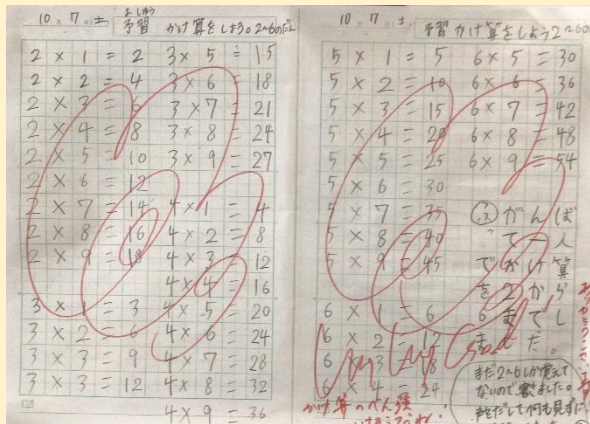 10.7.土
よしゅう
予習 かけ算をしよう。2~6のだん
2 × 1 = 2
2 × 2 = 4
2 × 3 = 6
2 × 4 = 8
2 × 5 = 10
2 × 6 = 12
2 × 7 = 14
2 × 8 = 16
2 × 9 = 18
3 × 1 = 3
3 × 2 = 6
3 × 3 = 9
3 × 3 = 12
3 × 5 = 15
3 × 6 = 18
3 × 7 = 21
3 × 8 = 24
3 × 9 = 27
4 × 1 = 4
4 × 2 = 8
4 × 3 = 12
4 × 4 = 16
4 × 5 = 20
4 × 6 = 24
4 × 7 = 28
4 × 8 = 32
4 × 9 = 36
10.7.土
予習 かけ算をしよう2~6の
5 × 1 = 5
5 × 2 = 10
5 × 3 = 15
5 × 4 = 20
5 × 5 = 25
5 × 6 = 30
5 × 7 = 35
5 × 8 = 40
5 × 9 = 45
6 × 1 = 6
6 × 2 = 12
6 × 3 = 18
6 × 4 = 24
6 × 5 = 30
6 × 6 = 36
6 × 7 = 42
6 × 8 = 48
6 × 9 = 54
がんば
て一人
でかけ算
を2から
6までし
ました。
まだ2~6しか覚えて
ないので、書きました。
かけ算のべん強